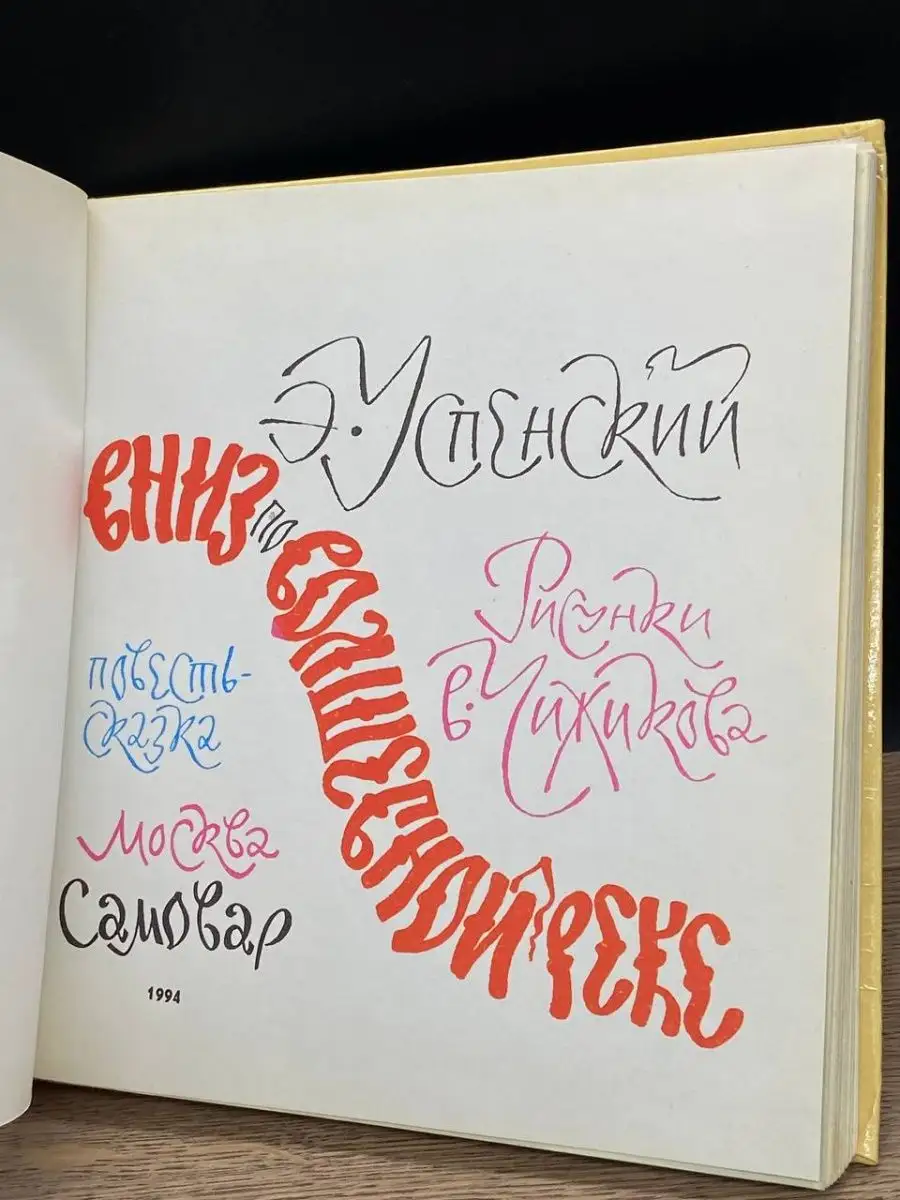 Э. Успенский
вниз по волшебной реке
Рисунки
В. Чижикова
повесть-
сказка
Москва
Самовар
1994